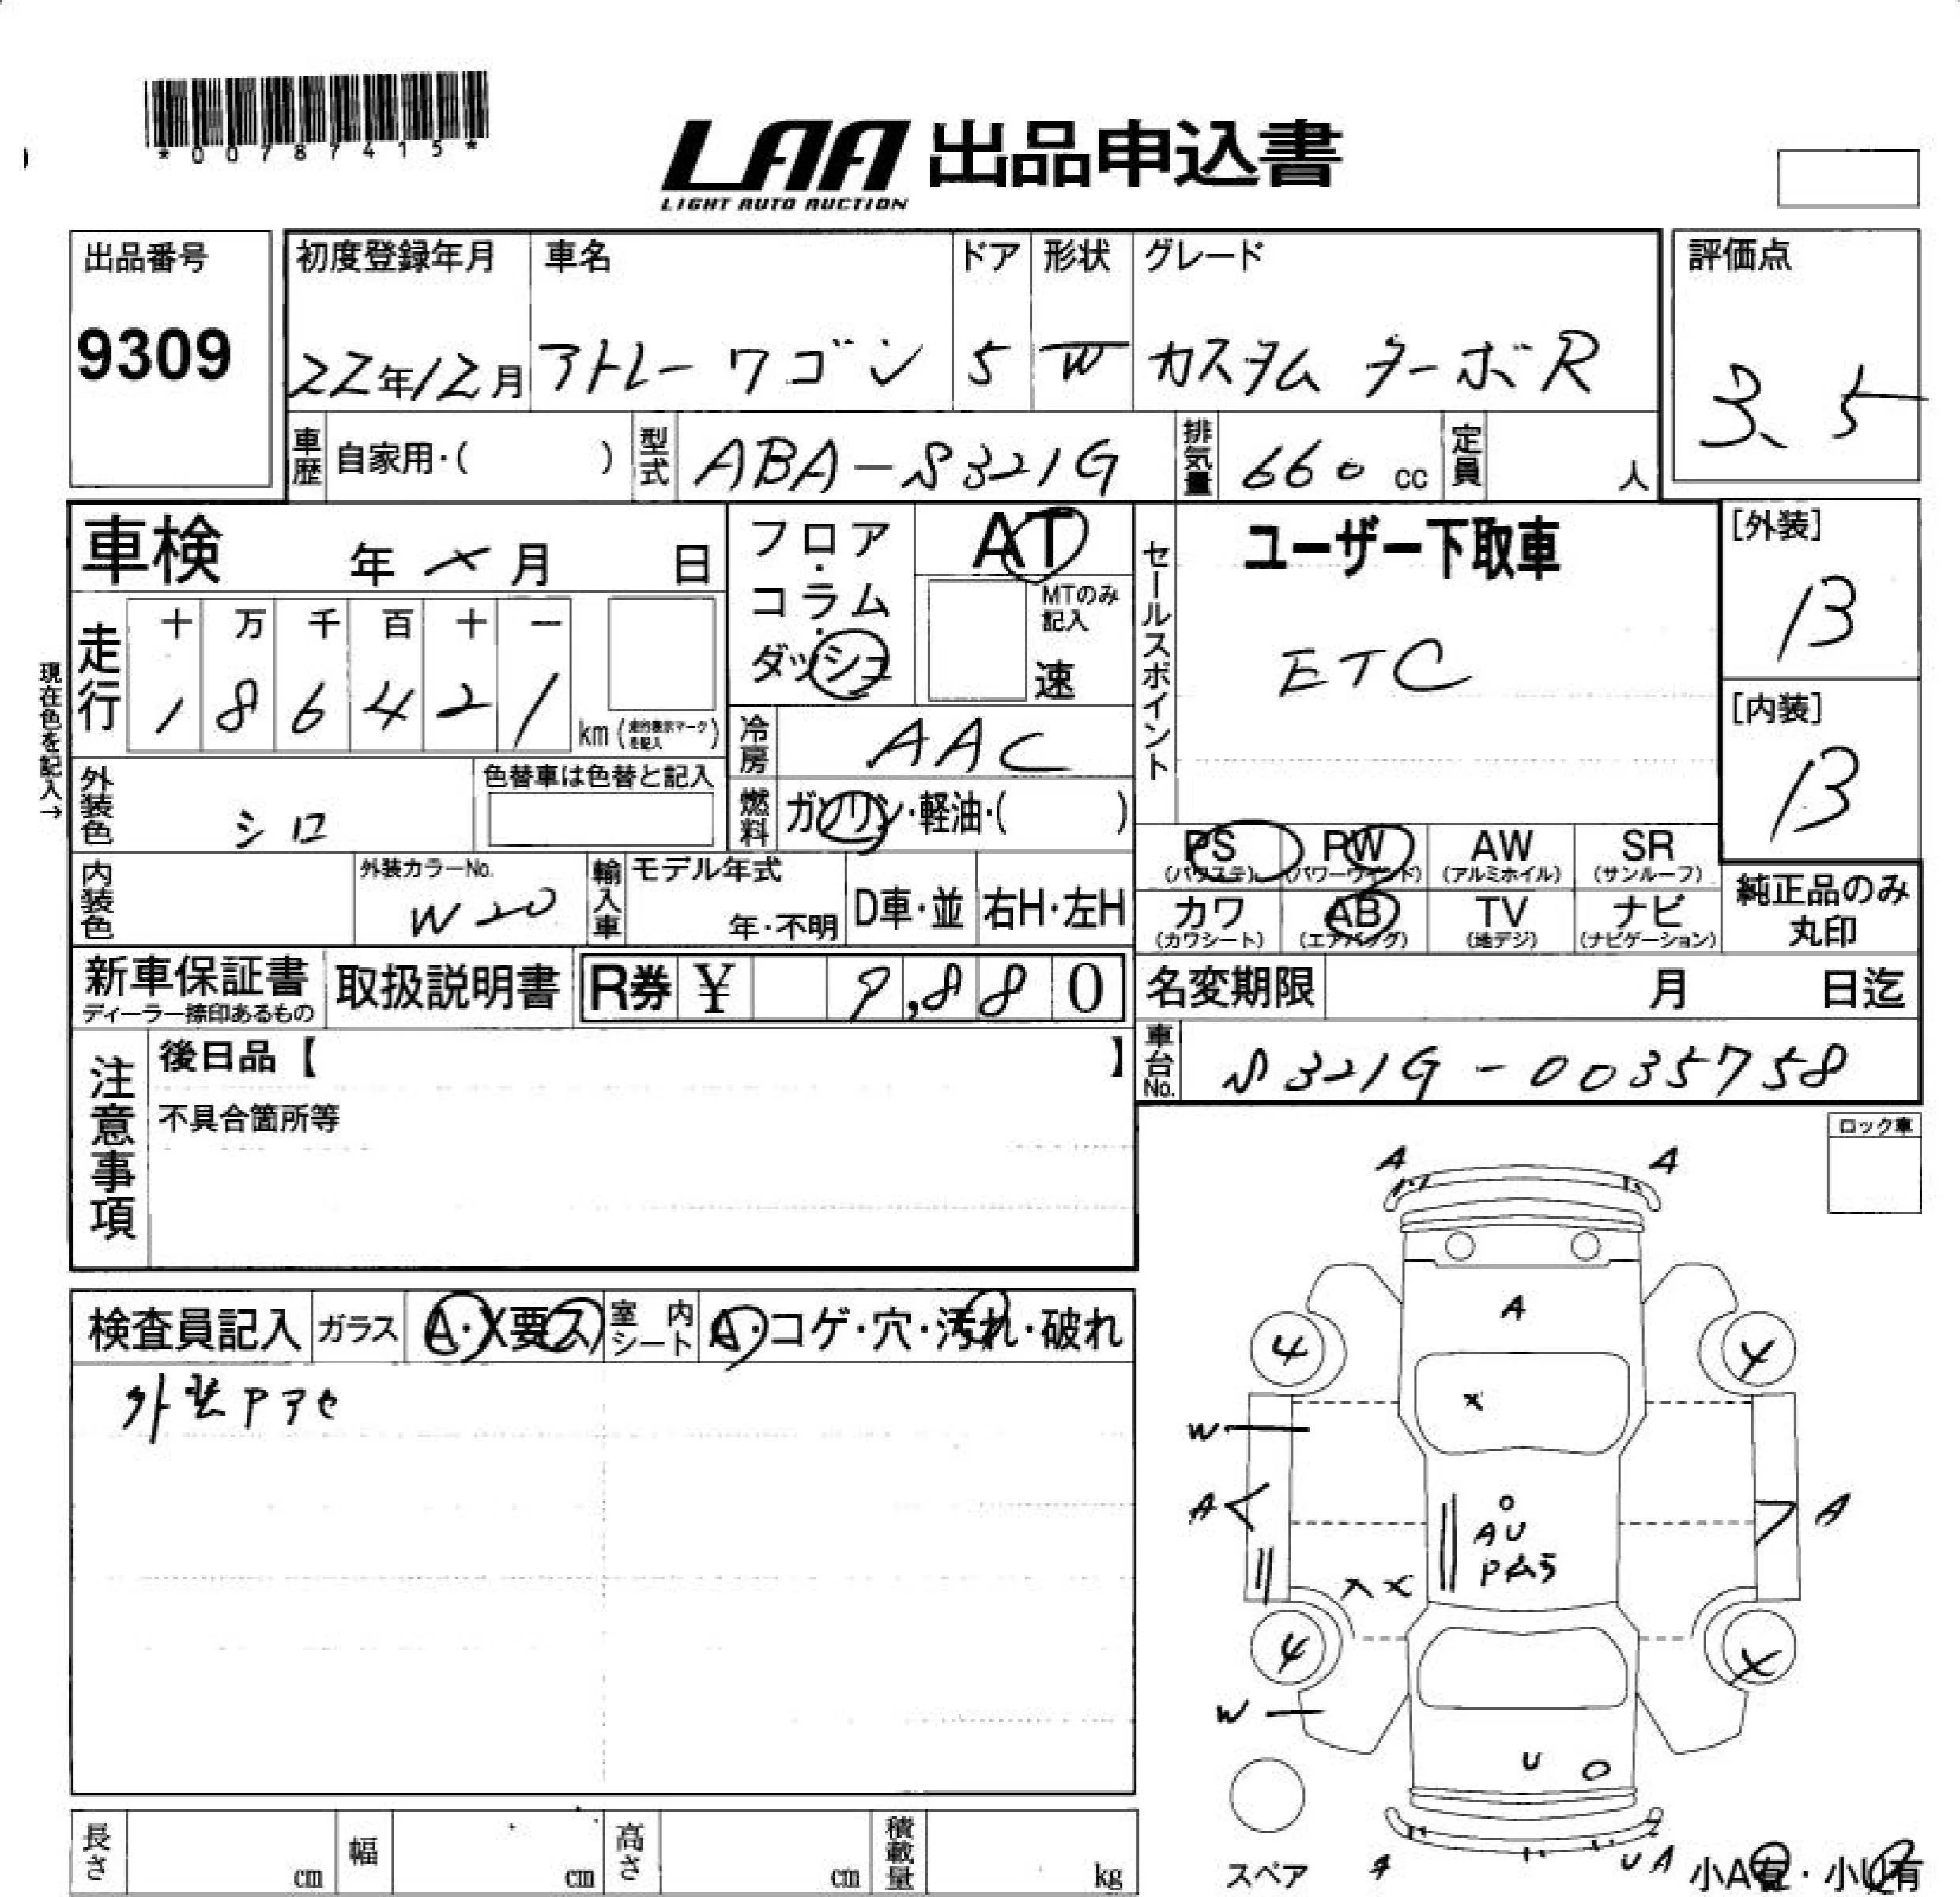 *00787415*
LAA 出品申込書
LIGHT AUTO AUCTION
出品番号
9309
初度登録年月 車名 ドア 形状 グレード
22年12月 アトレーワゴン 5 W カスタム ターボR
評価点
3.5
車歴 自家用・( ) 型式 ABA-S321G 排気量 660 cc 定員 人
車検 年 × 月 日
現在色を記入→
走行 十 万 千 百 十 一
1 8 6 4 2 1 km (走行表示マークを記入)
フロア・コラム・ダッシュ
AT
MTのみ記入
速
冷房 AAC
燃料 ガソリン・軽油・( )
セールスポイント
ユーザー下取車
ETC
[外装]
B
[内装]
B
外装色 シロ 色替車は色替と記入
内装色 外装カラーNo. W20
輸入車 モデル年式 年・不明 D車・並 右H・左H
PS (パワステ) PW (パワーウィンド) AW (アルミホイル) SR (サンルーフ)
カワ (カワシート) AB (エアバッグ) TV (地デジ) ナビ (ナビゲーション)
純正品のみ
丸印
新車保証書 ディーラー捺印あるもの 取扱説明書 R券 ¥ 9,880
名変期限 月 日迄
車台No. S321G-0035758
注意事項
後日品【 】
不具合箇所等
ロック車
検査員記入 ガラス A・X要ス 室内シート A・コゲ・穴・汚れ・破れ
外装Pアセ
A A
A
4 Y
X
W
A A
A U
X X
4 X
W
U
A U A
スペア
小A有・小U有
長さ cm 幅 cm 高さ cm 積載量 kg